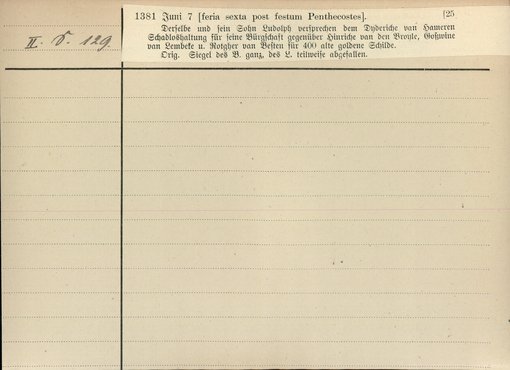 1381 Juni 7 [feria sexta post festum Penthecostes]. [25
Derselbe und sein Sohn Ludolph versprechen dem Dyderiche van Hameren
Schadloshaltung für seine Bürgschaft gegenüber Hinriche van den Broyle, Goßwine
van Lembeke u. Rotgher van Besten für 400 alte goldene Schilde.
Orig. Siegel des B. ganz, des L. teilweise abgefallen.
II. d. 129.